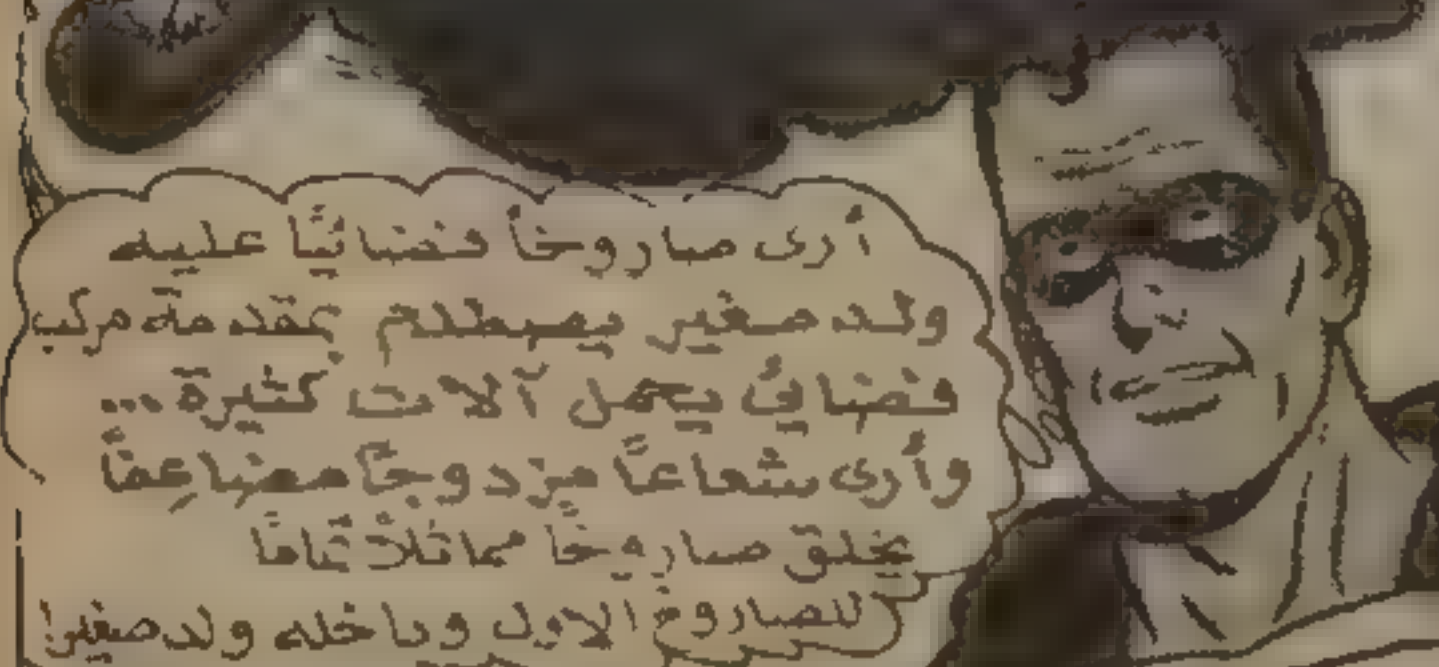 أرى صاروخاً فضائيًّا عليه
ولد صغير يصطدم بمقدمة مركب
فضائيُّ يحمل آلات كثيرة...
وأرى شعاعًا مزدوجًا مضاعفًا
يخلق صاروخًا مماثلاً تمامًا
للصاروخ الاول وداخله ولد صغير!